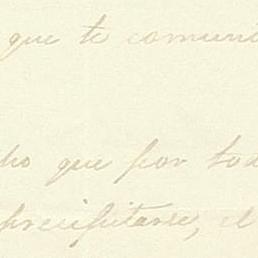 que te comuni
ho que por tod
precipitarse, el